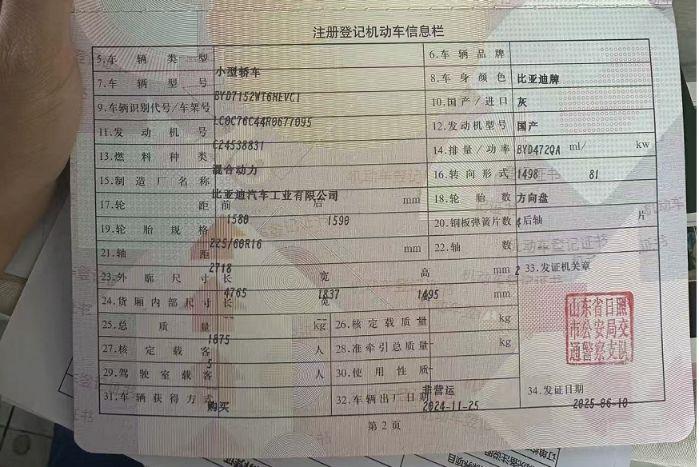 注册登记机动车信息栏
5.车辆类型 小型轿车 6.车辆品牌 比亚迪牌
7.车辆型号 BYD7152WT6HEVC1 8.车身颜色 灰
9.车辆识别代号/车架号 LC0C76C44R0677095 10.国产/进口 国产
11.发动机号 C24538831 12.发动机型号 BYD472QA
13.燃料种类 混合动力 14.排量/功率 1498 ml/ 81 kw
15.制造厂名称 比亚迪汽车工业有限公司 16.转向形式 方向盘
17.轮距 前 1580 后 1590 mm 18.轮胎数 4
19.轮胎规格 225/60R16 20.钢板弹簧片数 后轴 片
21.轴距 2718 mm 22.轴数 2
23.外廓尺寸 长 4765 宽 1837 高 1495 mm 33.发证机关章
24.货厢内部尺寸 长 -- 宽 -- 高 -- mm
25.总质量 1875 kg 26.核定载质量 -- kg
27.核定载客 5 人 28.准牵引总质量 -- kg
29.驾驶室载客 -- 人 30.使用性质 非营运
31.车辆获得方式 购买 32.车辆出厂日期 2024-11-25 34.发证日期 2025-06-10
山东省日照市公安局交通警察支队
第2页